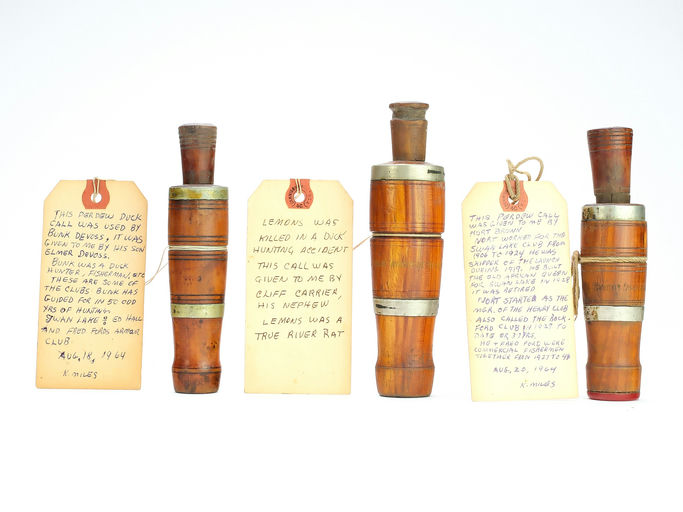 THIS PERDEW DUCK
CALL WAS USED BY
BUNK DEVOSS, IT WAS
GIVEN TO ME BY HIS SON
ELMER DEVOSS.
BUNK WAS A DUCK
HUNTER, FISHERMAN, ETC
THESE ARE SOME OF
THE CLUBS BUNK HAS
GUIDED FOR IN 50 ODD
YRS OF HUNTING.
SWAN LAKE & ED HALL
AND FRED FORDS ARMOUR
CLUB.
AUG, 18, 1964
K. MILES
LEMONS WAS
KILLED IN A DUCK
HUNTING ACCIDENT
THIS CALL WAS
GIVEN TO ME BY
CLIFF CARRIER,
HIS NEPHEW
LEMONS WAS A
TRUE RIVER RAT
THIS PERDEW CALL
WAS GIVEN TO ME BY
MORT
MORT WORKED FOR THE
SWAN LAKE CLUB FROM
1906 TO 1924 HE WAS
SKIPPER OF THE LAUNCH
DURING 1919. HE BUILT
THE OLD QUEEN
FOR SWAN LAKE IN 1928
IT WAS RETIRED
MORT STARTED AS THE
MGR. OF THE HENRY CLUB
ALSO CALLED THE
FORD CLUB IN 1927 TO
DATE OR 37 YRS.
HE & FRED FORD WERE
COMMERCIAL FISHERMEN
TOGETHER FROM 1927 TO
AUG, 20, 1964
K. MILES